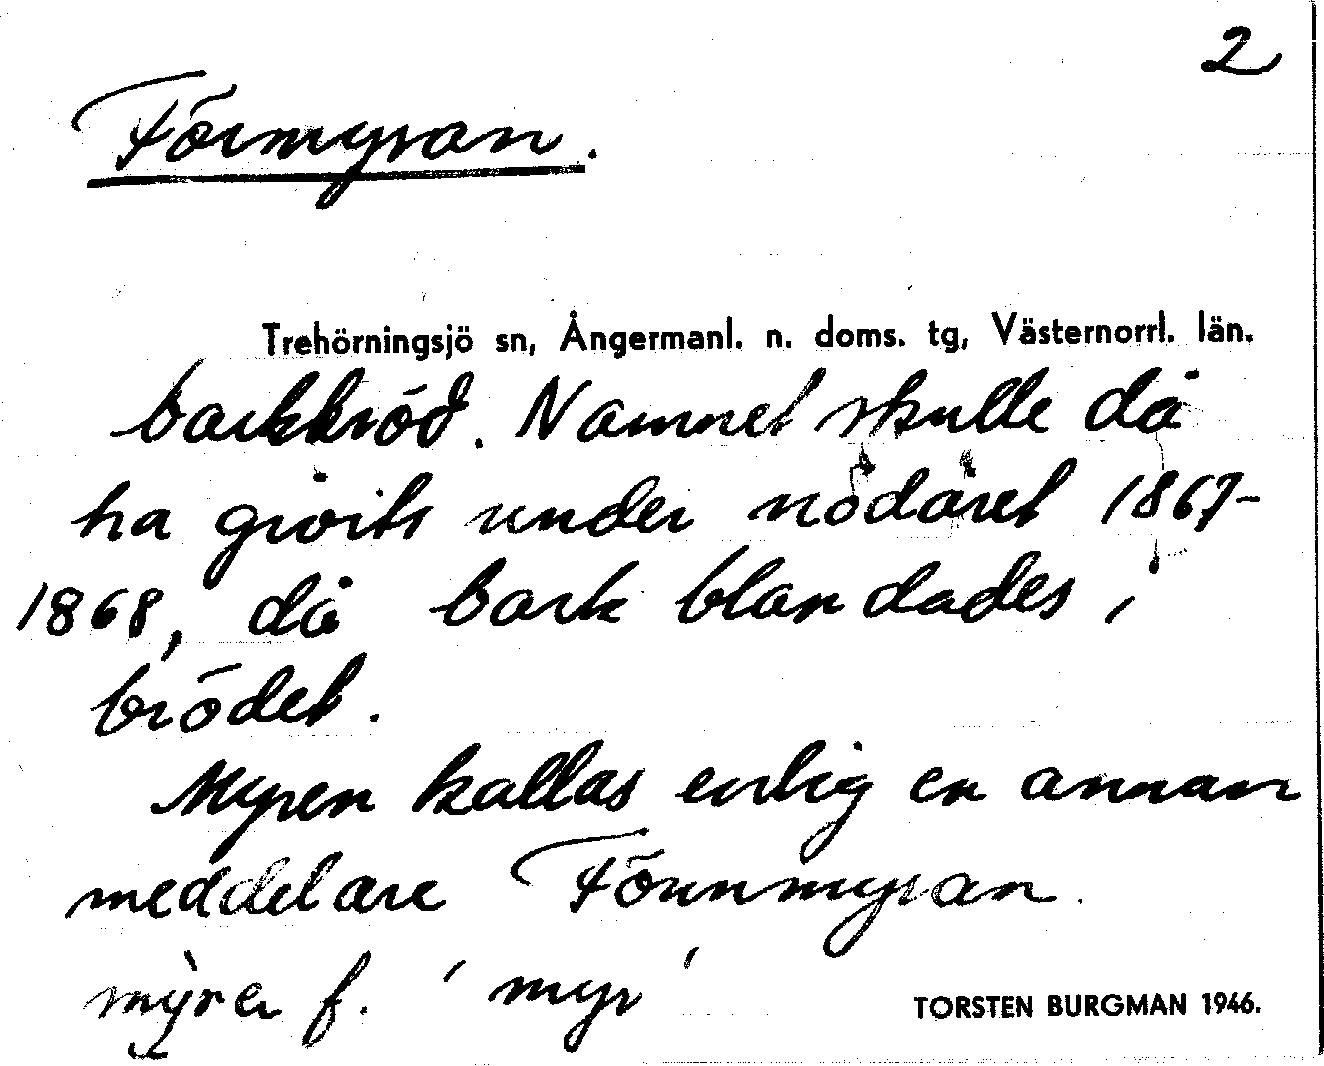 2
Förmyran.
Trehörningsjö sn, Ångermanl. n. doms. tg, Västernorrl. län.
barkbröd. Namnet skulle då
ha givits under nödåret 1867-
1868, då bark blandades i
brödet.
Myren kallas enlig en annan
meddelare Fönnmyran.
f. 'myr'
TORSTEN BURGMAN 1946.